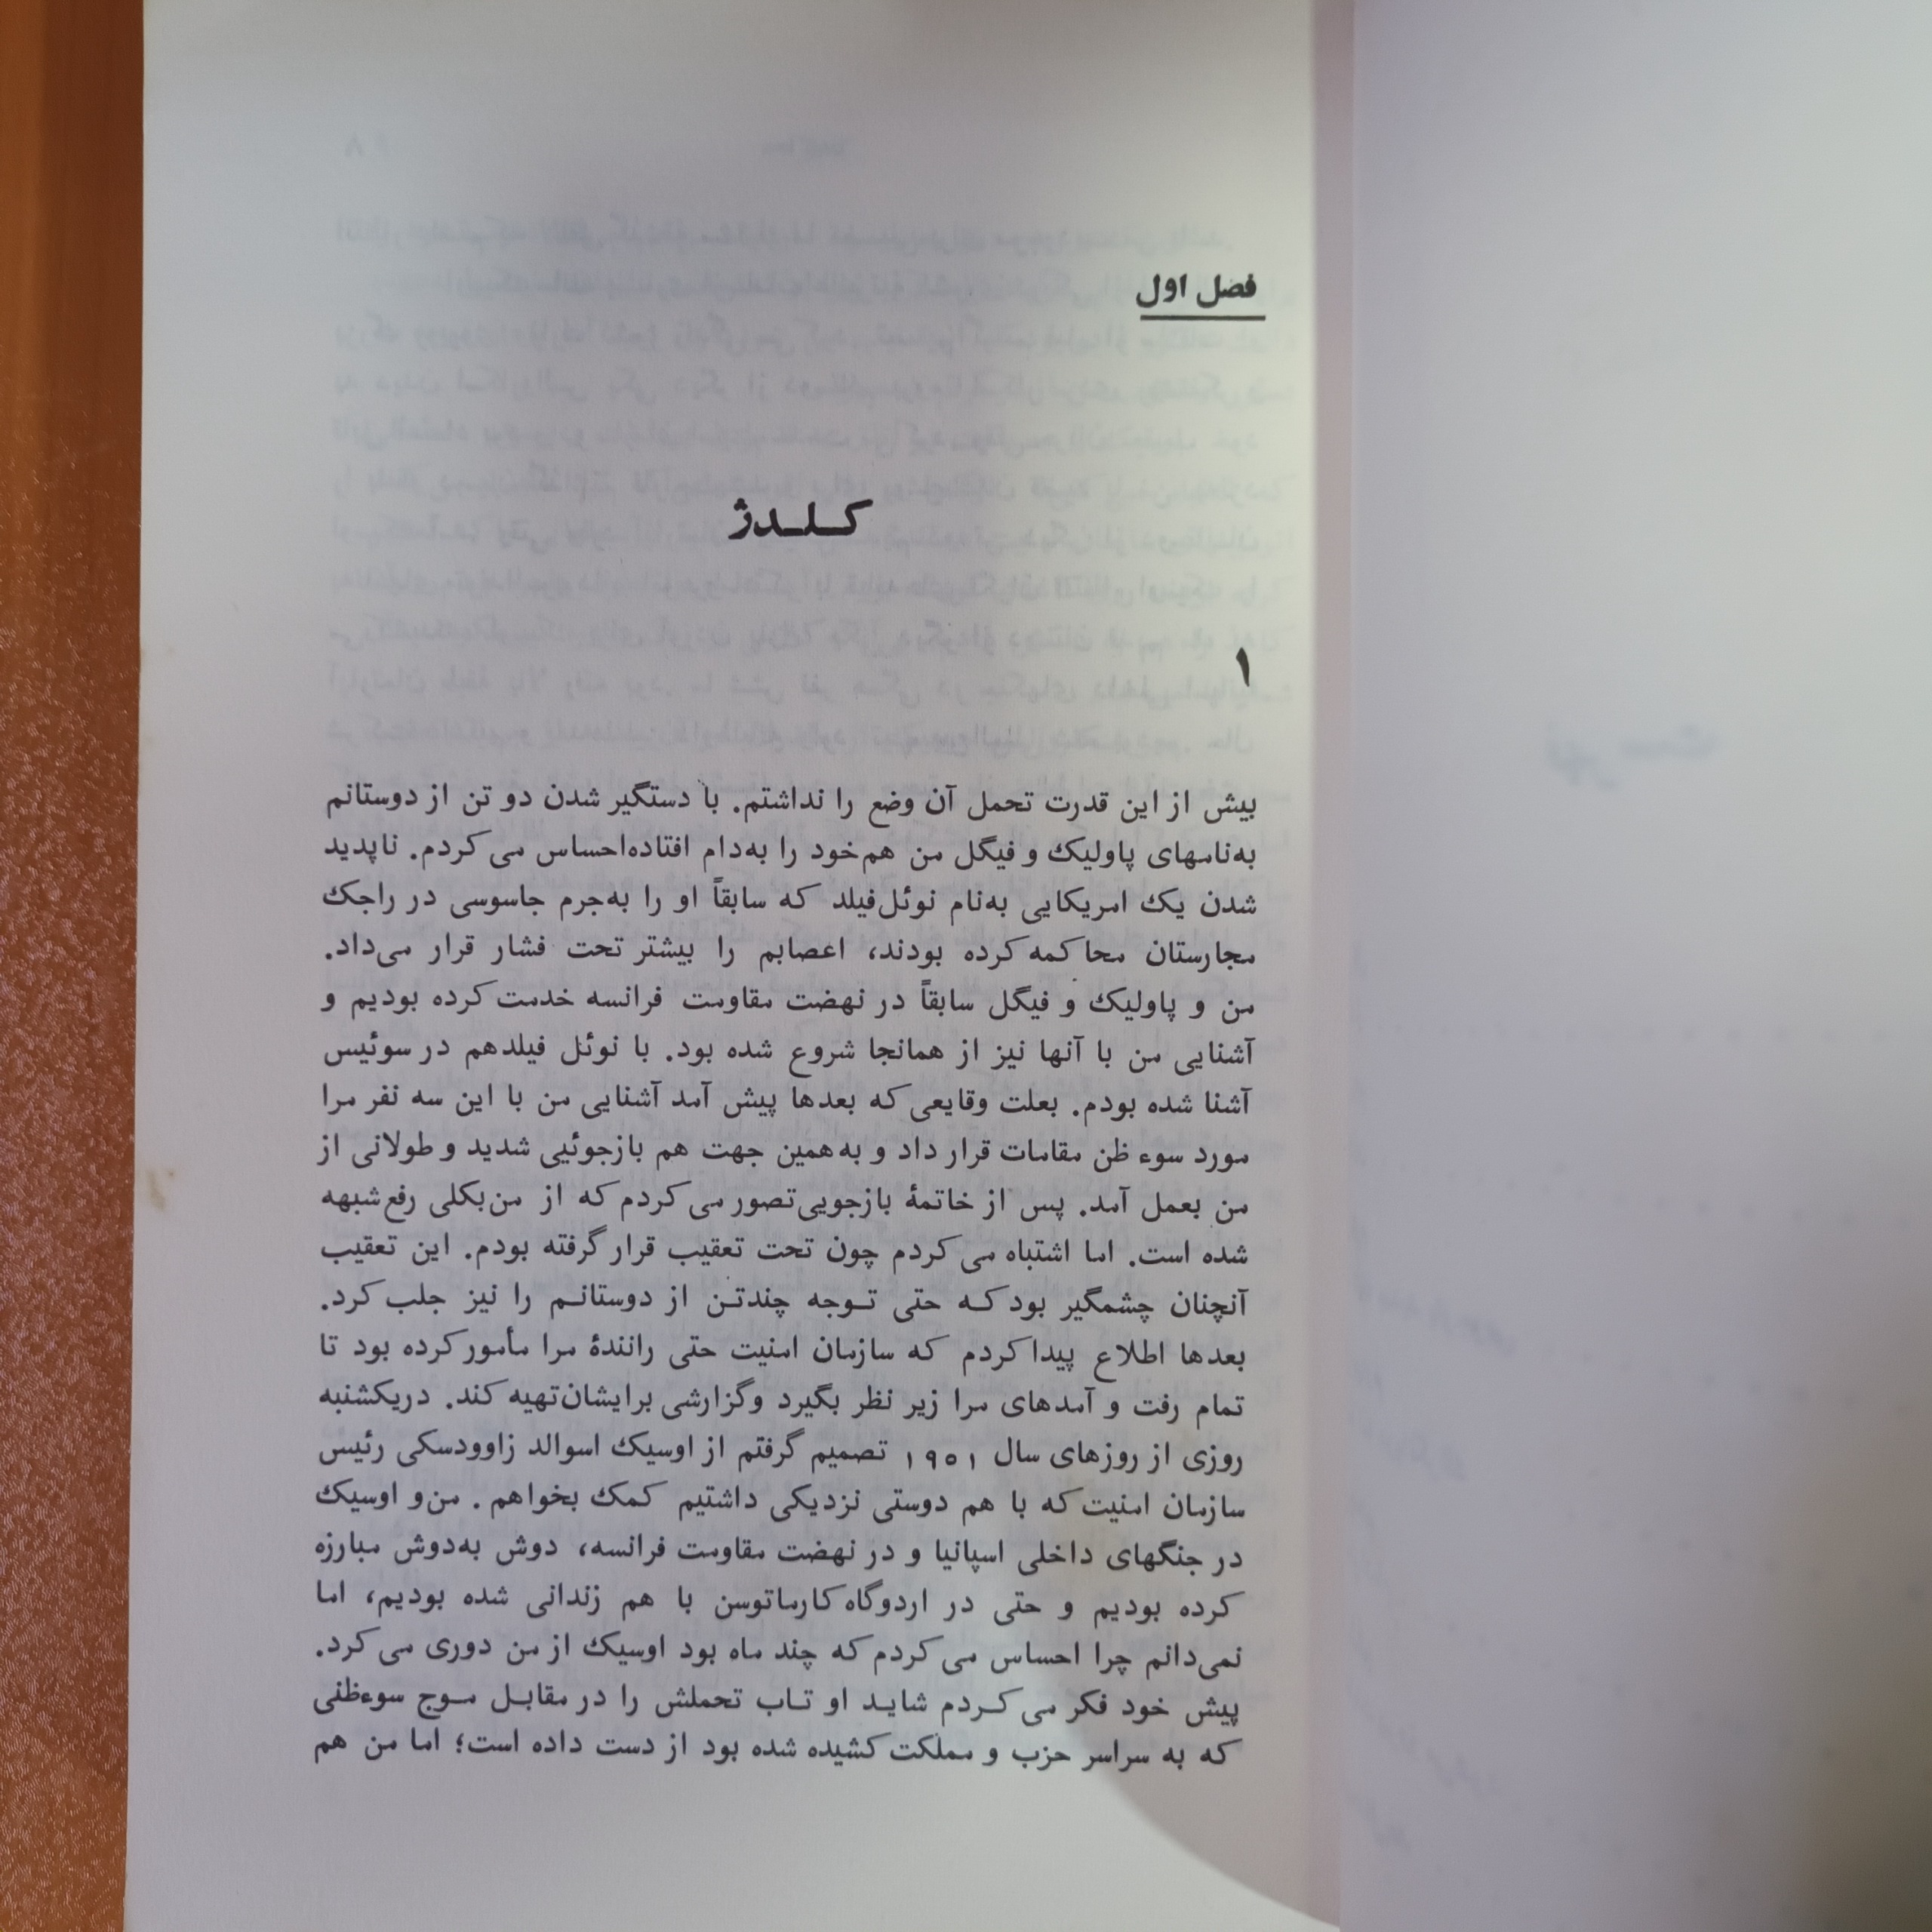 فصل اول
کلدژ
۱
بیش از این قدرت تحمل آن وضع را نداشتم. با دستگیر شدن دو تن از دوستانم
به‌نامهای پاولیک و فیگل من هم‌خود را به‌دام افتاده‌احساس می‌کردم. ناپدید
شدن یک امریکایی به‌نام نوئل‌فیلد که سابقاً او را به‌جرم جاسوسی در راجک
مجارستان محاکمه کرده بودند، اعصابم را بیشتر تحت فشار قرار می‌داد.
من و پاولیک و فیگل سابقاً در نهضت مقاومت فرانسه خدمت کرده بودیم و
آشنایی من با آنها نیز از همانجا شروع شده بود. با نوئل فیلدهم در سوئیس
آشنا شده بودم. بعلت وقایعی که بعدها پیش آمد آشنایی من با این سه نفر مرا
مورد سوء ظن مقامات قرار داد و به‌همین جهت هم بازجوئیی شدید و طولانی از
من بعمل آمد. پس از خاتمهٔ بازجویی‌تصور می‌کردم که از من‌بکلی رفع‌شبهه
شده است. اما اشتباه می‌کردم چون تحت تعقیب قرار گرفته بودم. این تعقیب
آنچنان چشمگیر بود که حتی توجه چندتن از دوستانم را نیز جلب کرد.
بعدها اطلاع پیدا کردم که سازمان امنیت حتی رانندهٔ مرا مأمور کرده بود تا
تمام رفت و آمدهای مرا زیر نظر بگیرد و گزارشی برایشان‌تهیه کند. در‌یکشنبه
روزی از روزهای سال ۱۹۵۱ تصمیم گرفتم از اوسیک اسوالد زاوودسکی رئیس
سازمان امنیت که با هم دوستی نزدیکی داشتیم کمک بخواهم. من‌و اوسیک
در جنگهای داخلی اسپانیا و در نهضت مقاومت فرانسه، دوش به‌دوش مبارزه
کرده بودیم و حتی در اردوگاه کارماتوسن با هم زندانی شده بودیم، اما
نمی‌دانم چرا احساس می‌کردم که چند ماه بود اوسیک از من دوری می‌کرد.
پیش خود فکر می‌کردم شاید او تاب تحملش را در مقابل موج سوءظنی
که به سراسر حزب و مملکت کشیده شده بود از دست داده است؛ اما من هم